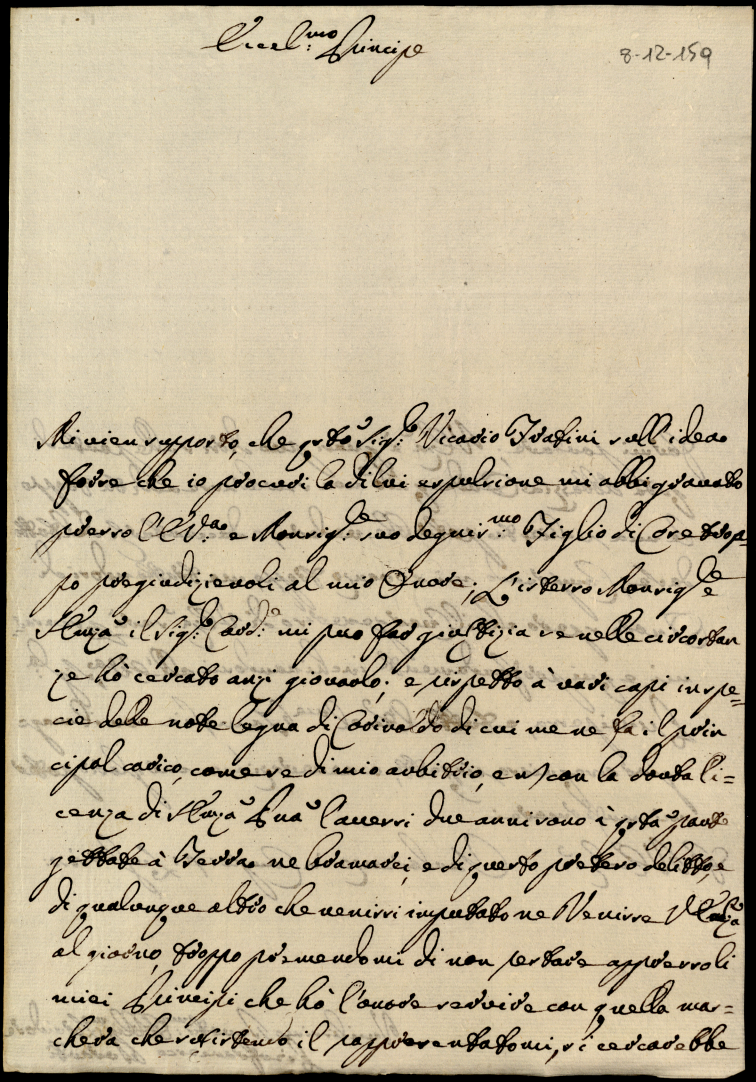 Eccel:mo Principe
8-12-159
Mi vien supposto, che qsto Sig:r Vicario Fratini sull idea
forse che io procuri la di lui espulsione mi abbi gravato
presso l'E V:a e Monsig:re suo degnis:mo Figlio di Cose trop=
po pregiudizievoli al mio Onore; L'istesso Monsig:re
il Sig:r Card:e mi può far giustizia se nelle circostan
ze hò cercato anzi giovarlo; e rispetto à vari capi in spe=
cie delle note legna di di cui me ne fa il prin
cipal carico, come se di mio arbitrio, e con la dovuta li=
cenza di l'avessi due anni sono à qsta parte
gettate à Terra ne bramarei, e di questo preteso delitto, e
di qualunque altro che venissi imputato ne Venisse
al giorno, troppo premendomi di non restare appresso li
miei Principi che hò l'onore servire con quella mas=
chera che sussistendo il rappresentatomi, si cercarebbe